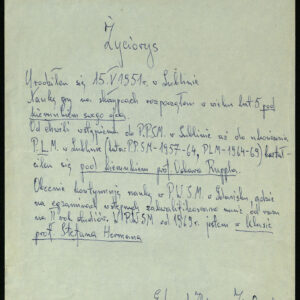 Życiorys
Urodziłem się 15.V 1951r. w Lublinie
Naukę gry na skrzypcach rozpocząłem w wieku lat 5 pod
kierunkiem swego ojca.
Od chwili wstąpienia do P.P.S.M. w Lublinie aż do ukończenia
P.L.M. w Lublinie (lata: PPSM-1957-64, PLM-1964-69) kształ-
ciłem się pod kierunkiem prof. Oskara Ruppla.
Obecnie kontynuuję naukę w P.W.S.M. w Gdańsku, gdzie
na egzaminach wstępnych zakwalifikowano mnie od razu
na II rok studiów. W PWSM od 1969r. jestem w klasie
prof. Stefana Hermana